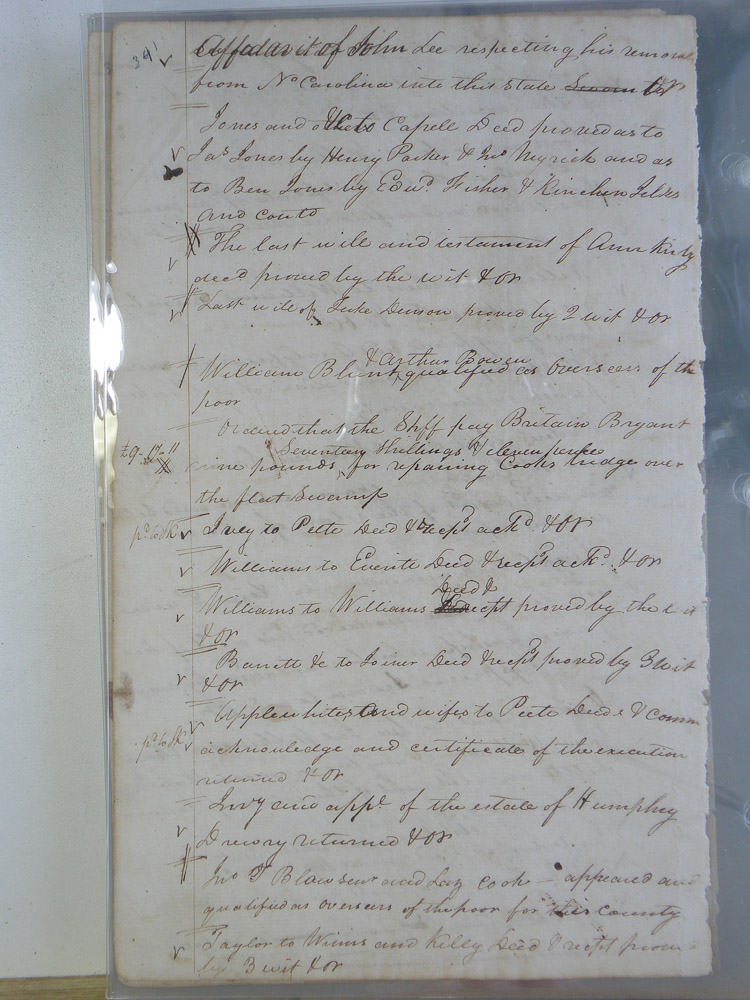 341 Affadavit of John Lee respecting his removal
from No Carolina into this state Sworn to & OR
Jones and others to Capell Deed proved as to
Jas Jones by Henry Parker & Jno Myrick and as
to Ben Jones by Edwd. Fisher & Kinchen
and contd
The last will and testament of Ann Kirby
decd proved by the wit & OR
Last will of Luke Denson proved by 2 wit & OR
& Arthur Bowen
William Blunt qualified as Overseers of the
poor
Ordered that the Shff pay Britain Bryant
Seventeen Shillings & eleven pence
£9-17-11 nine pounds, for repairing Cooks bridge over
the flat Swamp
pd. to SK Ivey to Peete Deed & recpt ackd. & OR
Williams to Everitt Deed & recpt ackd. & OR
Deed &
Williams to Williams recpt proved by the wit
& OR
Barrett &c to Joiner Deed & recpt proved by 3 wit
& OR
Applewhites and wifes to Peete Deeds & Comm
pd. to SK acknowledge and certificate of the execution
returned & OR
Invy and appt. of the estate of Humphry
Drewry returned & OR
Jno T Blow senr and Laz Cook appeared and
qualified as overseers of the poor for this county
Taylor to Wims and Killy Deed & recpt proved
by 3 wit & OR